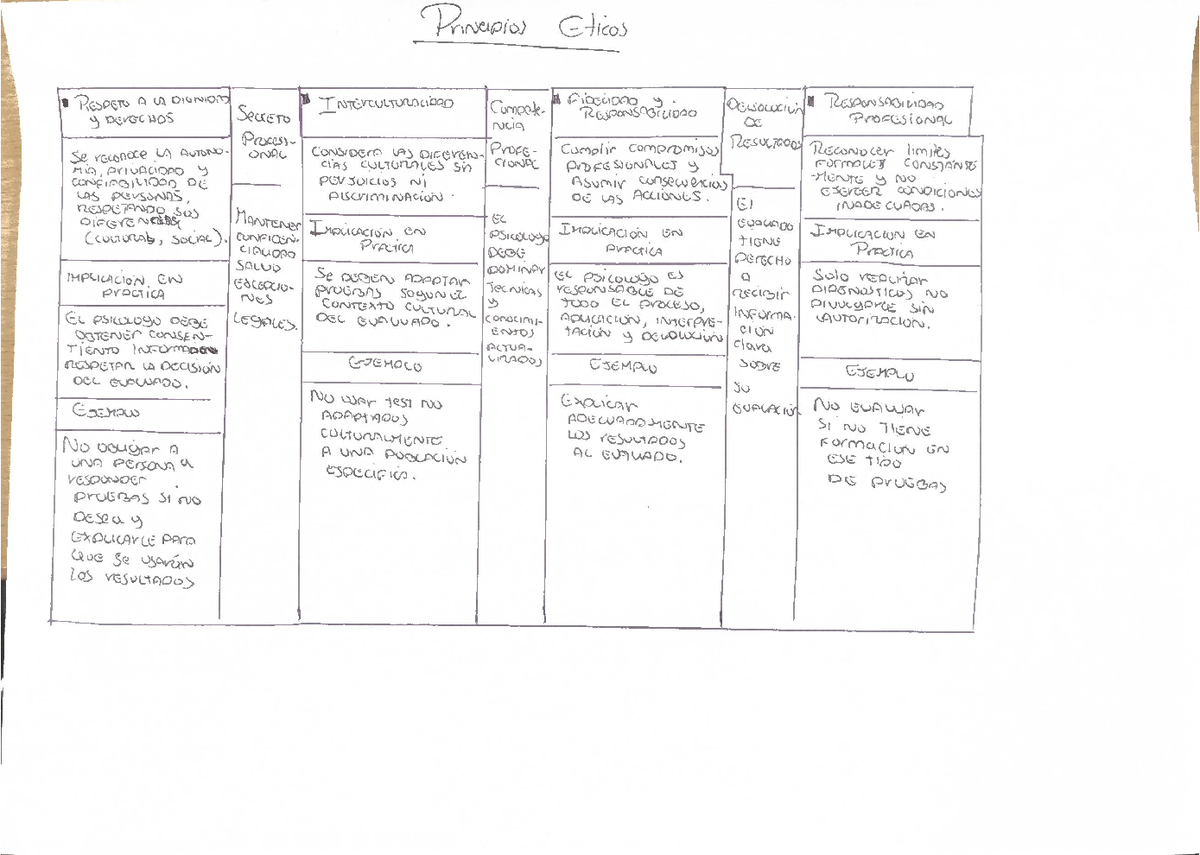 Principios Eticos
RESPETO A LA DIGNIDAD
Y DERECHOS
SE RECONOCE LA AUTONO-
MIA, PRIVACIDAD Y
CONFIABILIDAD DE
LAS PERSONAS,
RESPETANDO SUS
DIFERENCIAS
(CULTURAL, SOCIAL).
IMPLICACION EN
PRACTICA
EL PSICOLOGO DEBE
OBTENER CONSEN-
TIENTO INFORMADO
RESPETAR LA DECISIÓN
DEL EVALUADO.
EJEMPLO
NO OBLIGAR A
UNA PERSONA a
RESPONDER
PRUEBAS SI NO
DESEA Y
EXPLICARLE PARA
QUE SE USARÁN
LOS RESULTADOS
SECRETO
PROFESI-
ONAL
MANTENER
CONFIDEN-
CIALIDAD
SALUD
EXCEPCIO-
NES
LEGALES.
INTERCULTURALIDAD
CONSIDERA LAS DIFEREN-
CIAS CULTURALES SIN
PERJUICIOS NI
DISCRIMINACION.
IMPLICACION EN
PRACTICA
SE DEBEN ADAPTAR
PRUEBAS SEGUN EL
CONTEXTO CULTURAL
DEL EVALUADO.
EJEMPLO
NO USAR TEST NO
ADAPTADOS
CULTURALMENTE
A UNA POBLACIÓN
ESPECIFICA.
Compete-
NCIA
PROFE-
CIONAL
EL
PSICOLOGO
DEBE
DOMINAR
Tecnicas
y
CONOCIMI-
ENTOS
ACTUA-
LIZADOS
FIDELIDAD Y
RESPONSABILIDAD
Cumplir compromisos
PROFESIONALES Y
ASUMIR CONSECUENCIAS
DE LAS ACCIONES.
IMPLICACION EN
PRACTICA
EL PSICOLOGO ES
RESPONSABLE DE
TODO EL PROCESO,
APLICACIÓN, INTERPRE-
TACIÓN Y DEVOLUCIÓN
EJEMPLO
EXPLICAR
ADECUADAMENTE
LOS RESULTADOS
AL EVALUADO.
DEVOLUCION
DE
RESULTADOS
El
EVALUADO
TIENE
DERECHO
A
RECIBIR
INFORMA-
CIÓN
Clara
SOBRE
SU
EVALACIÓN
RESPONSABILIDAD
PROFESIONAL
RECONOCER LIMITES
FORMALES CONSTANTE
-MENTE Y NO
EJERCER CONDICIONES
INADECUADAS.
IMPLICACION EN
PRACTICA
SOLO REALIZAR
DIAGNOSTICOS, NO
DIVULGARLE SIN
AUTORIZACION.
EJEMPLO
NO EVALUAR
SI NO TIENE
FORMACION EN
ESE TIPO
DE PRUEBAS